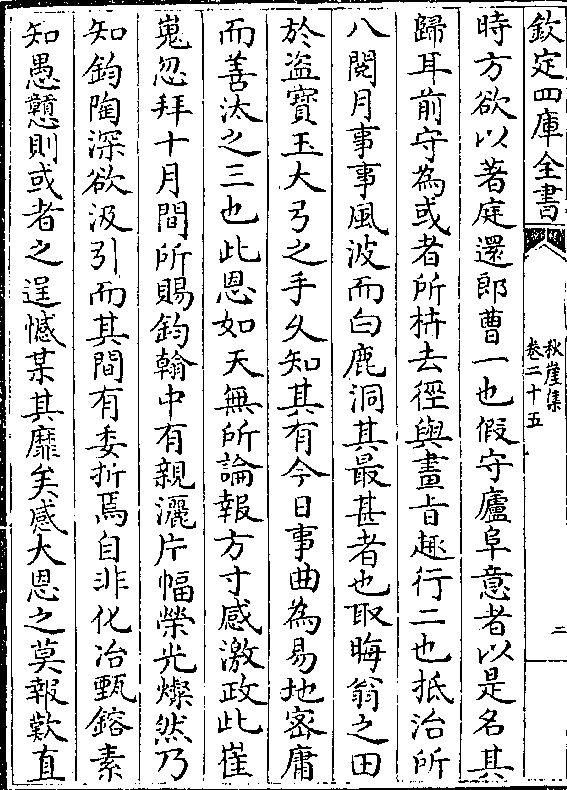 欽定四庫全書
秋崖集
卷二十五
二
時方欲以著庭還郎曹一也假守廬阜意者以是名其
歸耳前守為或者所枿去徑與畫㫖趣行二也抵治所
八閲月事事風波而白鹿洞其最甚者也取晦翁之田
於盗寳玉大弓之手久知其有今日事曲為易地宻庸
而善汰之三也此恩如天無所論報方寸感激政此崔
嵬忽拜十月間所賜鈞翰中有親灑片幅榮光燦然乃
知鈞陶深欲汲引而其間有委折焉自非化冶甄鎔素
知愚戆則或者之逞憾某其靡矣感大恩之莫報歎直